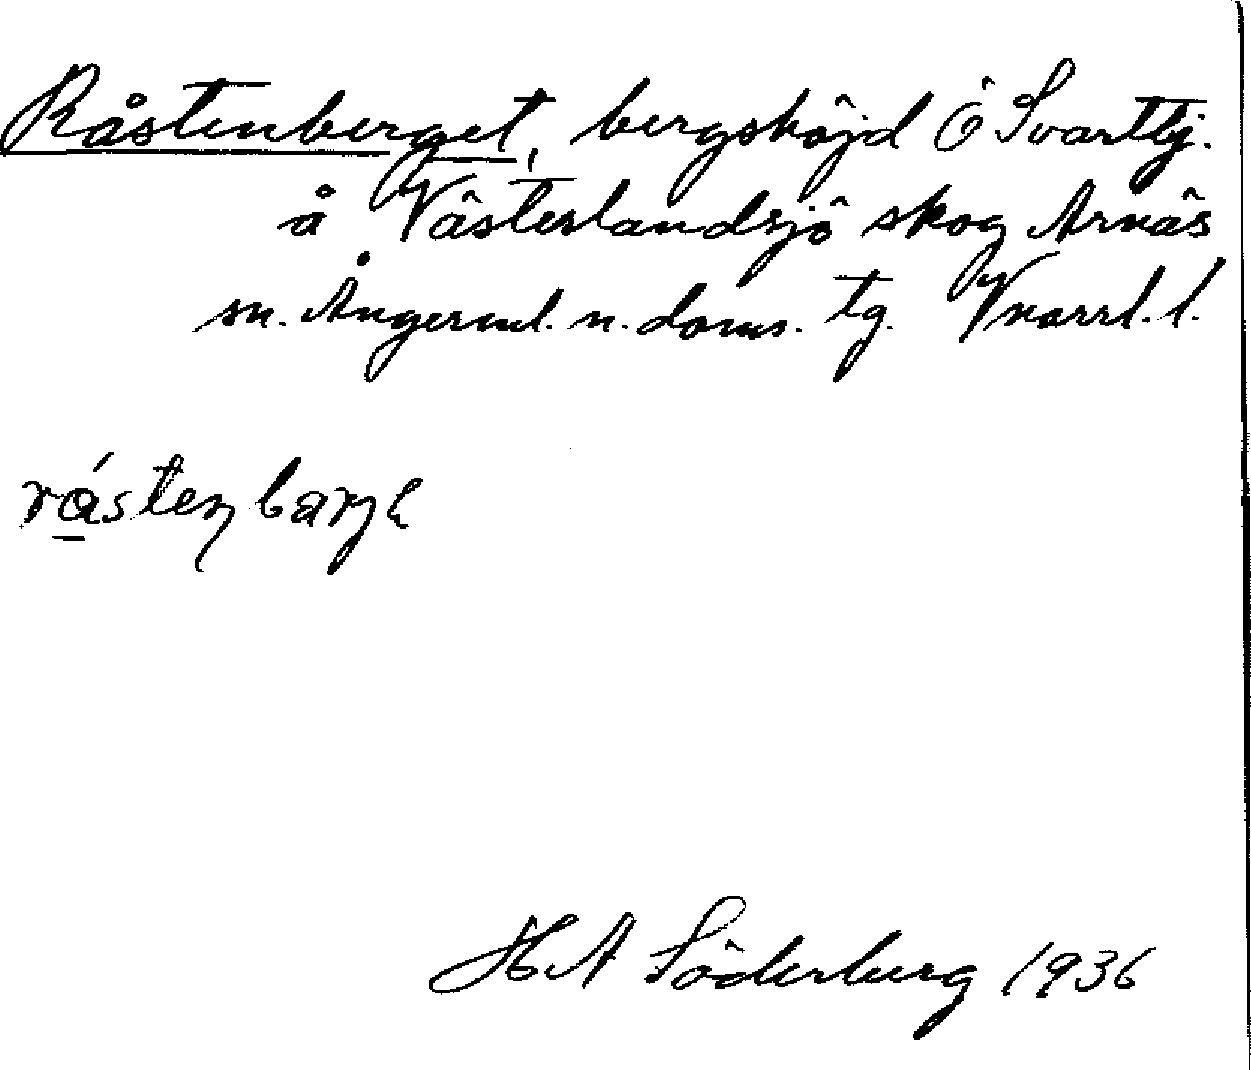 Råstenberget, bergshöjd Ö Svarttj.
å Västerlandsjö skog Arnäs
sn. Ångerml. n. doms. tg. Vnorrl. l.
råstenbarjɛ
H A Söderberg 1936